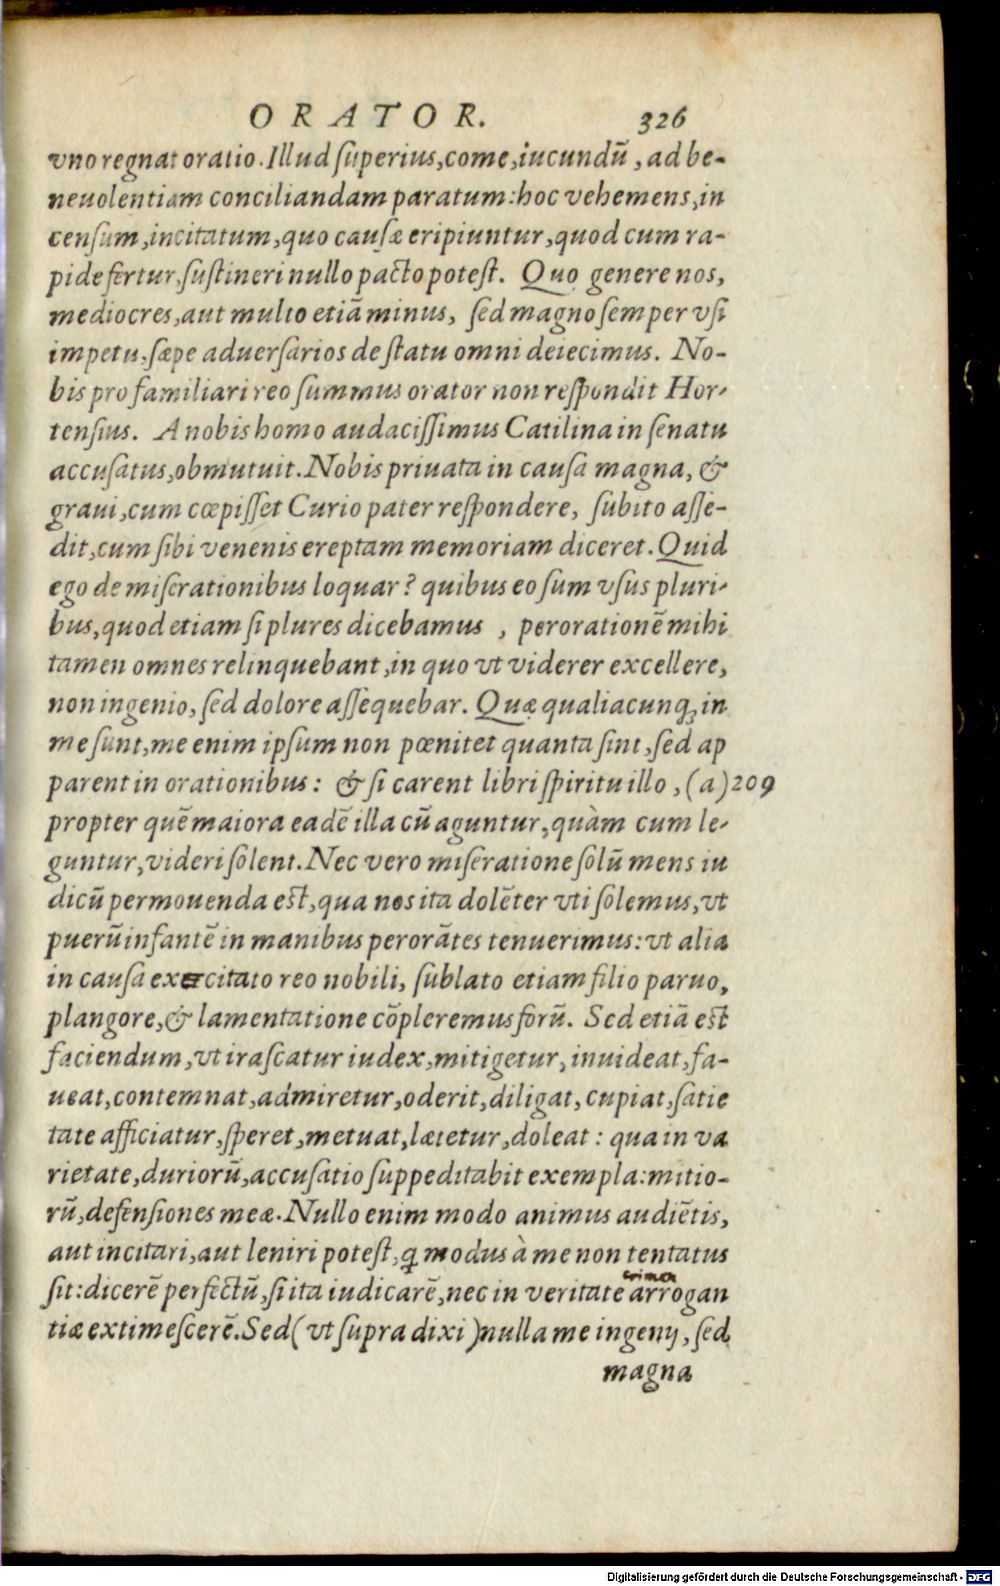 ORATOR. 326
vno regnat oratio. Illud superius, come, iucundū, ad be-
neuolentiam conciliandam paratum: hoc vehemens, in
censum, incitatum, quo causæ eripiuntur, quod cum ra-
pide fertur, sustineri nullo pacto potest. Quo genere nos,
mediocres, aut multo etiā minus, sed magno semper vsi
impetu, sæpe aduersarios de statu omni deiecimus. No-
bis pro familiari reo summus orator non respondit Hor-
tensius. A nobis homo audacissimus Catilina in senatu
accusatus, obmutuit. Nobis priuata in causa magna, &
graui, cum cœpisset Curio pater respondere, subito asse-
dit, cum sibi venenis ereptam memoriam diceret. Quid
ego de miserationibus loquar? quibus eo sum vsus pluri-
bus, quod etiam si plures dicebamus, perorationē mihi
tamen omnes relinquebant, in quo vt viderer excellere,
non ingenio, sed dolore assequebar. Quæ qualiacunq; in
me sunt, me enim ipsum non pœnitet quanta sint, sed ap
parent in orationibus: & si carent libri spiritu illo, (a) 209
propter quē maiora eadē illa cū aguntur, quàm cum le-
guntur, videri solent. Nec vero miseratione solū mens iu
dicū permouenda est, qua nos ita dolēter vti solemus, vt
puerū infantē in manibus perorātes tenuerimus: vt alia
in causa excitato reo nobili, sublato etiam filio paruo,
plangore, & lamentatione cōpleremus forū. Sed etiā est
faciendum, vt irascatur iudex, mitigetur, inuideat, fa-
ueat, contemnat, admiretur, oderit, diligat, cupiat, satie
tate afficiatur, speret, metuat, lætetur, doleat: qua in va
rietate, duriorū, accusatio suppeditabit exempla: mitio-
rū, defensiones meæ. Nullo enim modo animus audiētis,
aut incitari, aut leniri potest, q modus à me non tentatus
crimen
sit: dicerē perfectū, si ita iudicarē, nec in veritate arrogan
tiæ extimescerē. Sed (vt supra dixi) nulla me ingenij, sed
magna
Digitalisierung gefördert durch die Deutsche Forschungsgemeinschaft - DFG